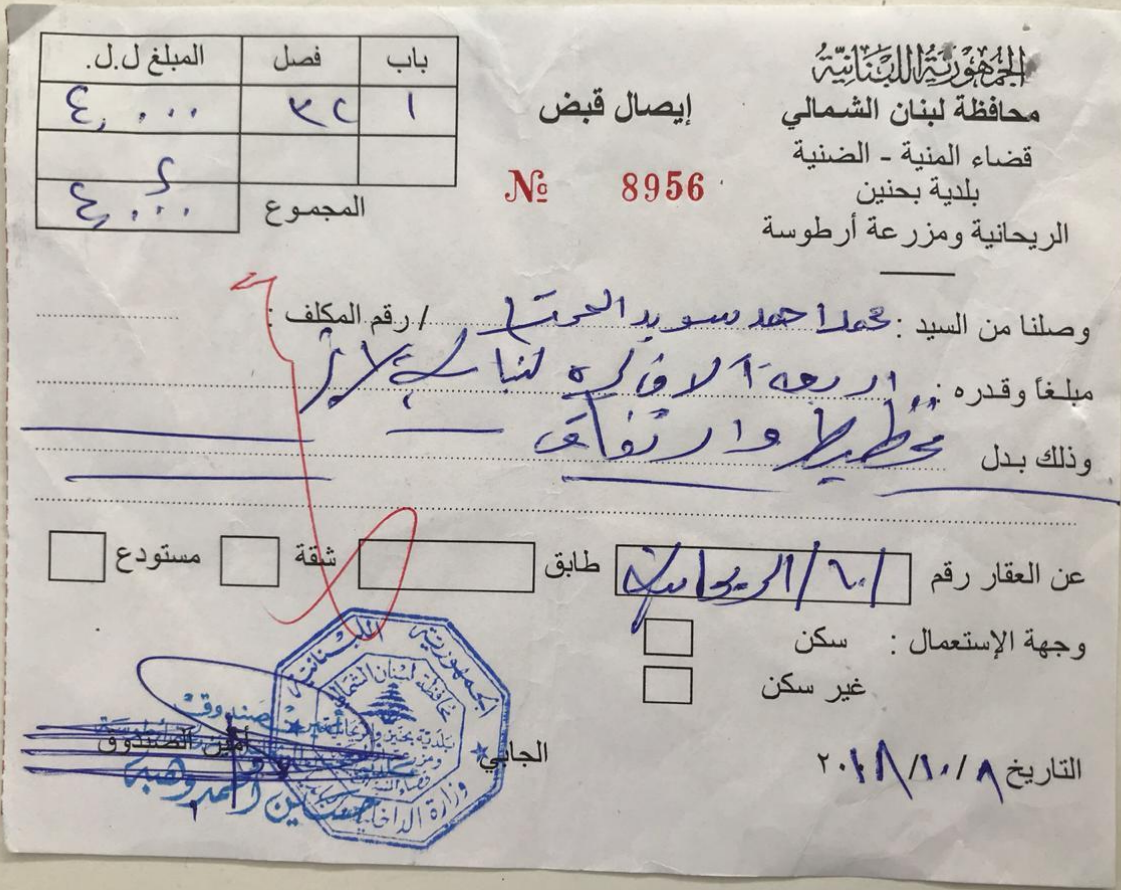 الجمهورية اللبنانية
محافظة لبنان الشمالي
قضاء المنية - الضنية
بلدية بحنين
الريحانية ومزرعة أرطوسة
إيصال قبض
№ 8956
باب فصل المبلغ ل.ل.
١ ٣٢ ٤,٠٠٠
المجموع ٤,٠٠٠
وصلنا من السيد : محمد احمد سويد / رقم المكلف :
مبلغاً وقدره : اربعة آلاف ليرة لبنانية لا غير
وذلك بدل تخطيط وارتفاق
عن العقار رقم /٦٠/ الريحانية طابق شقة مستودع
وجهة الإستعمال : سكن
غير سكن
التاريخ ٨/١٠/٢٠١٨
الجابي
أمين الصندوق
أمين الصندوق
حسين أحمد وهبة
الجمهورية اللبنانية
محافظة لبنان الشمالي
وزارة الداخلية